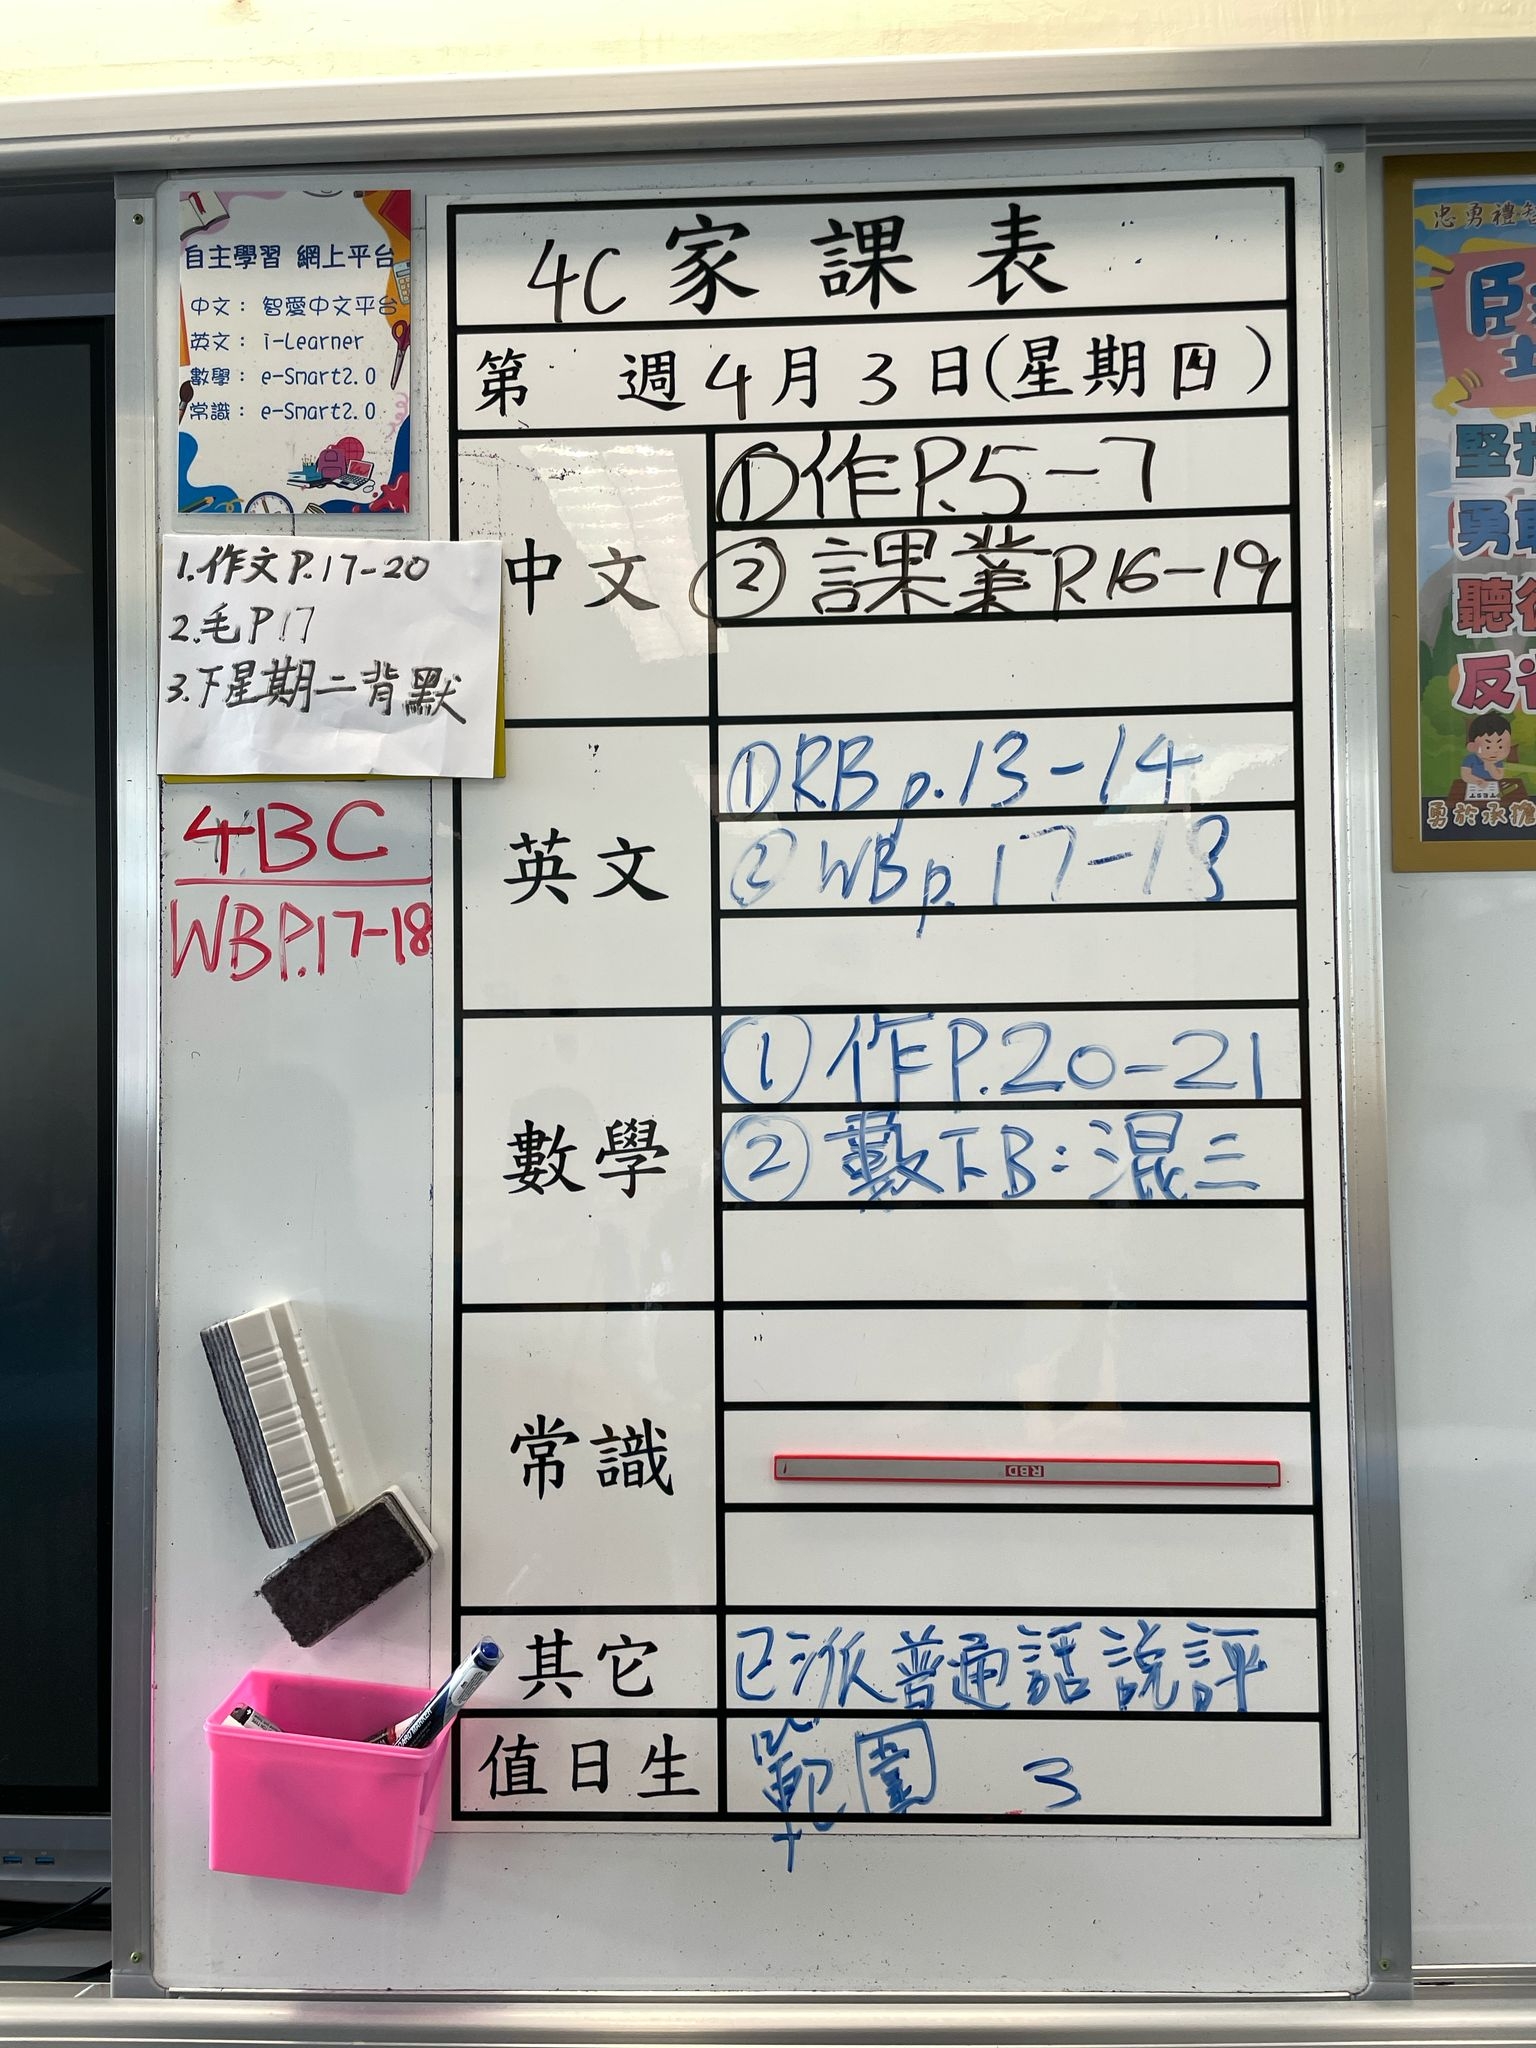 自主學習 網上平台
中文： 智愛中文平台
英文： i-Learner
數學： e-Smart2.0
常識： e-Smart2.0
1.作文P.17-20
2.毛P17
3.下星期二背默
4BC
WBP.17-18
4C 家課表
第 週4月3日(星期四)
中文
①作P.5-7
②課業P.16-19
英文
①RB p.13-14
②WB p.17-18
數學
①作P.20-21
②數下B：混三
常識
RBD
其它
已派普通話說評
範圍
值日生
3
忠勇禮
堅
勇敢
聽
反省
TEST
勇於承擔